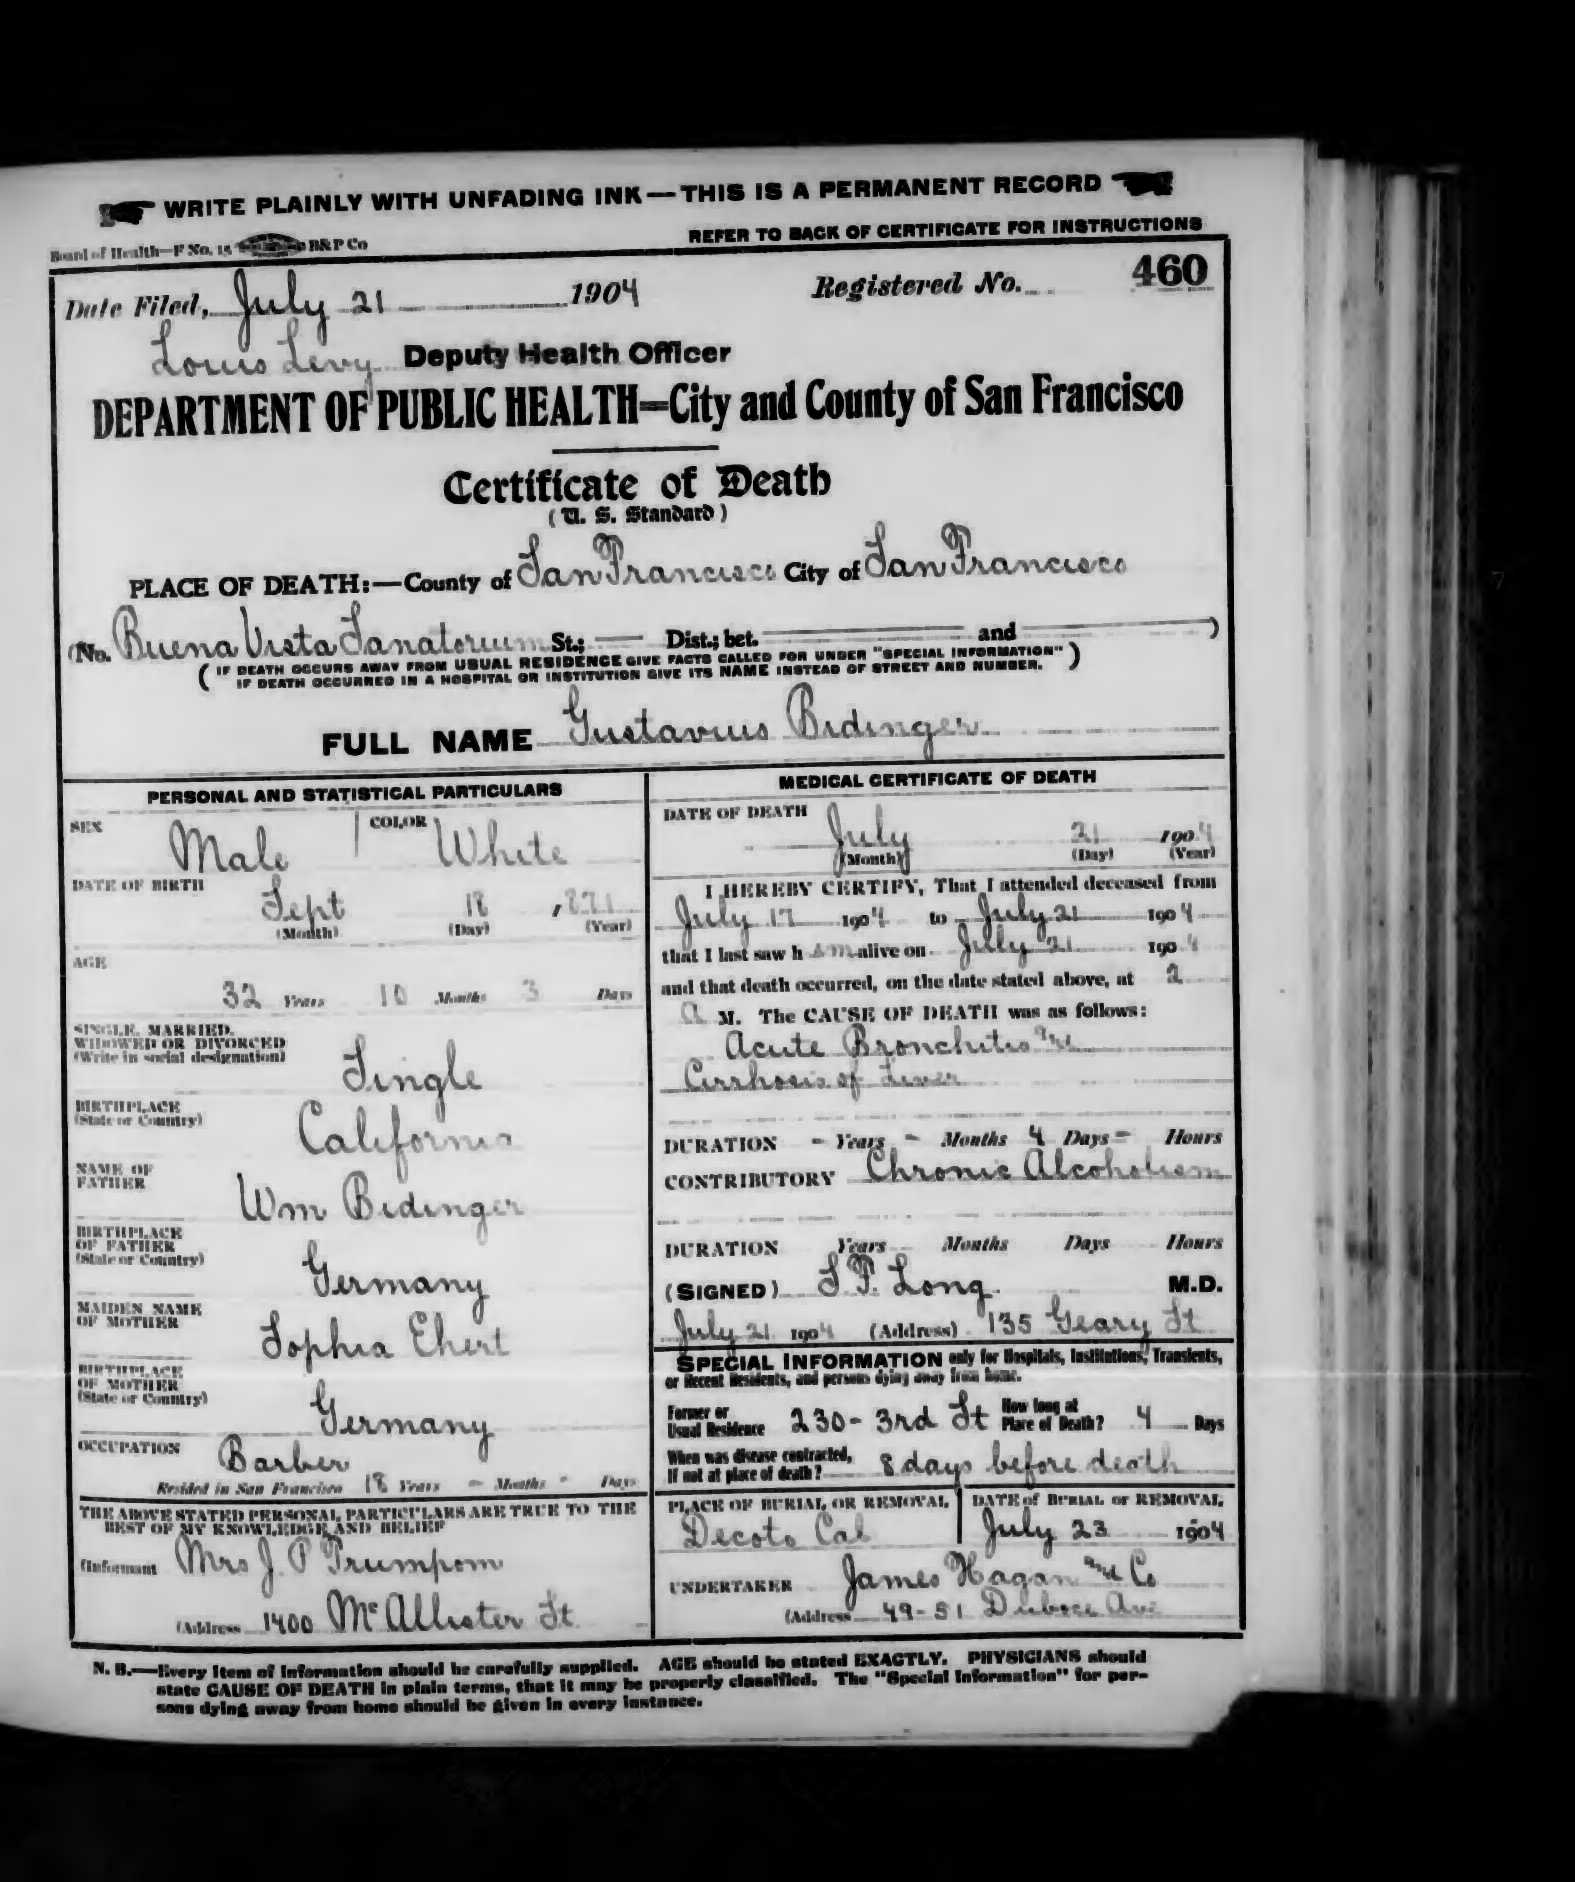 WRITE PLAINLY WITH UNFADING INK — THIS IS A PERMANENT RECORD
Board of Health—F No. 15 B&P Co
REFER TO BACK OF CERTIFICATE FOR INSTRUCTIONS
Date Filed, July 21 1904 Registered No. 460
Louis Levy Deputy Health Officer
DEPARTMENT OF PUBLIC HEALTH=City and County of San Francisco
Certificate of Death
(U. S. Standard)
PLACE OF DEATH:—County of San Francisco City of San Francisco
(No. Buena Vista Sanatorium St.; Dist.; bet. and )
(IF DEATH OCCURS AWAY FROM USUAL RESIDENCE GIVE FACTS CALLED FOR UNDER "SPECIAL INFORMATION"
IF DEATH OCCURRED IN A HOSPITAL OR INSTITUTION GIVE ITS NAME INSTEAD OF STREET AND NUMBER.)
FULL NAME Gustavus Bidinger
PERSONAL AND STATISTICAL PARTICULARS
SEX Male COLOR White
DATE OF BIRTH
Sept 18 1871
(Month) (Day) (Year)
AGE
32 Years 10 Months 3 Days
SINGLE, MARRIED,
WIDOWED OR DIVORCED
(Write in social designation)
Single
BIRTHPLACE
(State or Country)
California
NAME OF
FATHER
Wm Bidinger
BIRTHPLACE
OF FATHER
(State or Country)
Germany
MAIDEN NAME
OF MOTHER
Sophia Ehert
BIRTHPLACE
OF MOTHER
(State or Country)
Germany
OCCUPATION Barber
Resided in San Francisco 18 Years - Months - Days
THE ABOVE STATED PERSONAL PARTICULARS ARE TRUE TO THE
BEST OF MY KNOWLEDGE AND BELIEF
(Informant Mrs J. P Trumpom
(Address 1400 Mc Allister St
MEDICAL CERTIFICATE OF DEATH
DATE OF DEATH
July 21 1904
(Month) (Day) (Year)
I HEREBY CERTIFY, That I attended deceased from
July 17 1904 to July 21 1904
that I last saw h im alive on July 21 1904
and that death occurred, on the date stated above, at 2
a M. The CAUSE OF DEATH was as follows:
Acute Bronchitis and
Cirrhosis of Liver
DURATION - Years - Months 4 Days - Hours
CONTRIBUTORY Chronic Alcoholism
DURATION Years Months Days Hours
(SIGNED) S F. Long M.D.
July 21 1904 (Address) 135 Geary St
SPECIAL INFORMATION only for Hospitals, Institutions, Transients,
or Recent Residents, and persons dying away from home.
Former or
Usual Residence 230- 3rd St How long at
Place of Death? 4 Days
When was disease contracted,
If not at place of death? 8 days before death
PLACE OF BURIAL OR REMOVAL
Decoto Cal
DATE of BURIAL or REMOVAL
July 23 1904
UNDERTAKER James Hagan and Co
(Address 49-51 Duboce Ave
N. B.—Every item of information should be carefully supplied. AGE should be stated EXACTLY. PHYSICIANS should
state CAUSE OF DEATH in plain terms, that it may be properly classified. The "Special Information" for per-
sons dying away from home should be given in every instance.